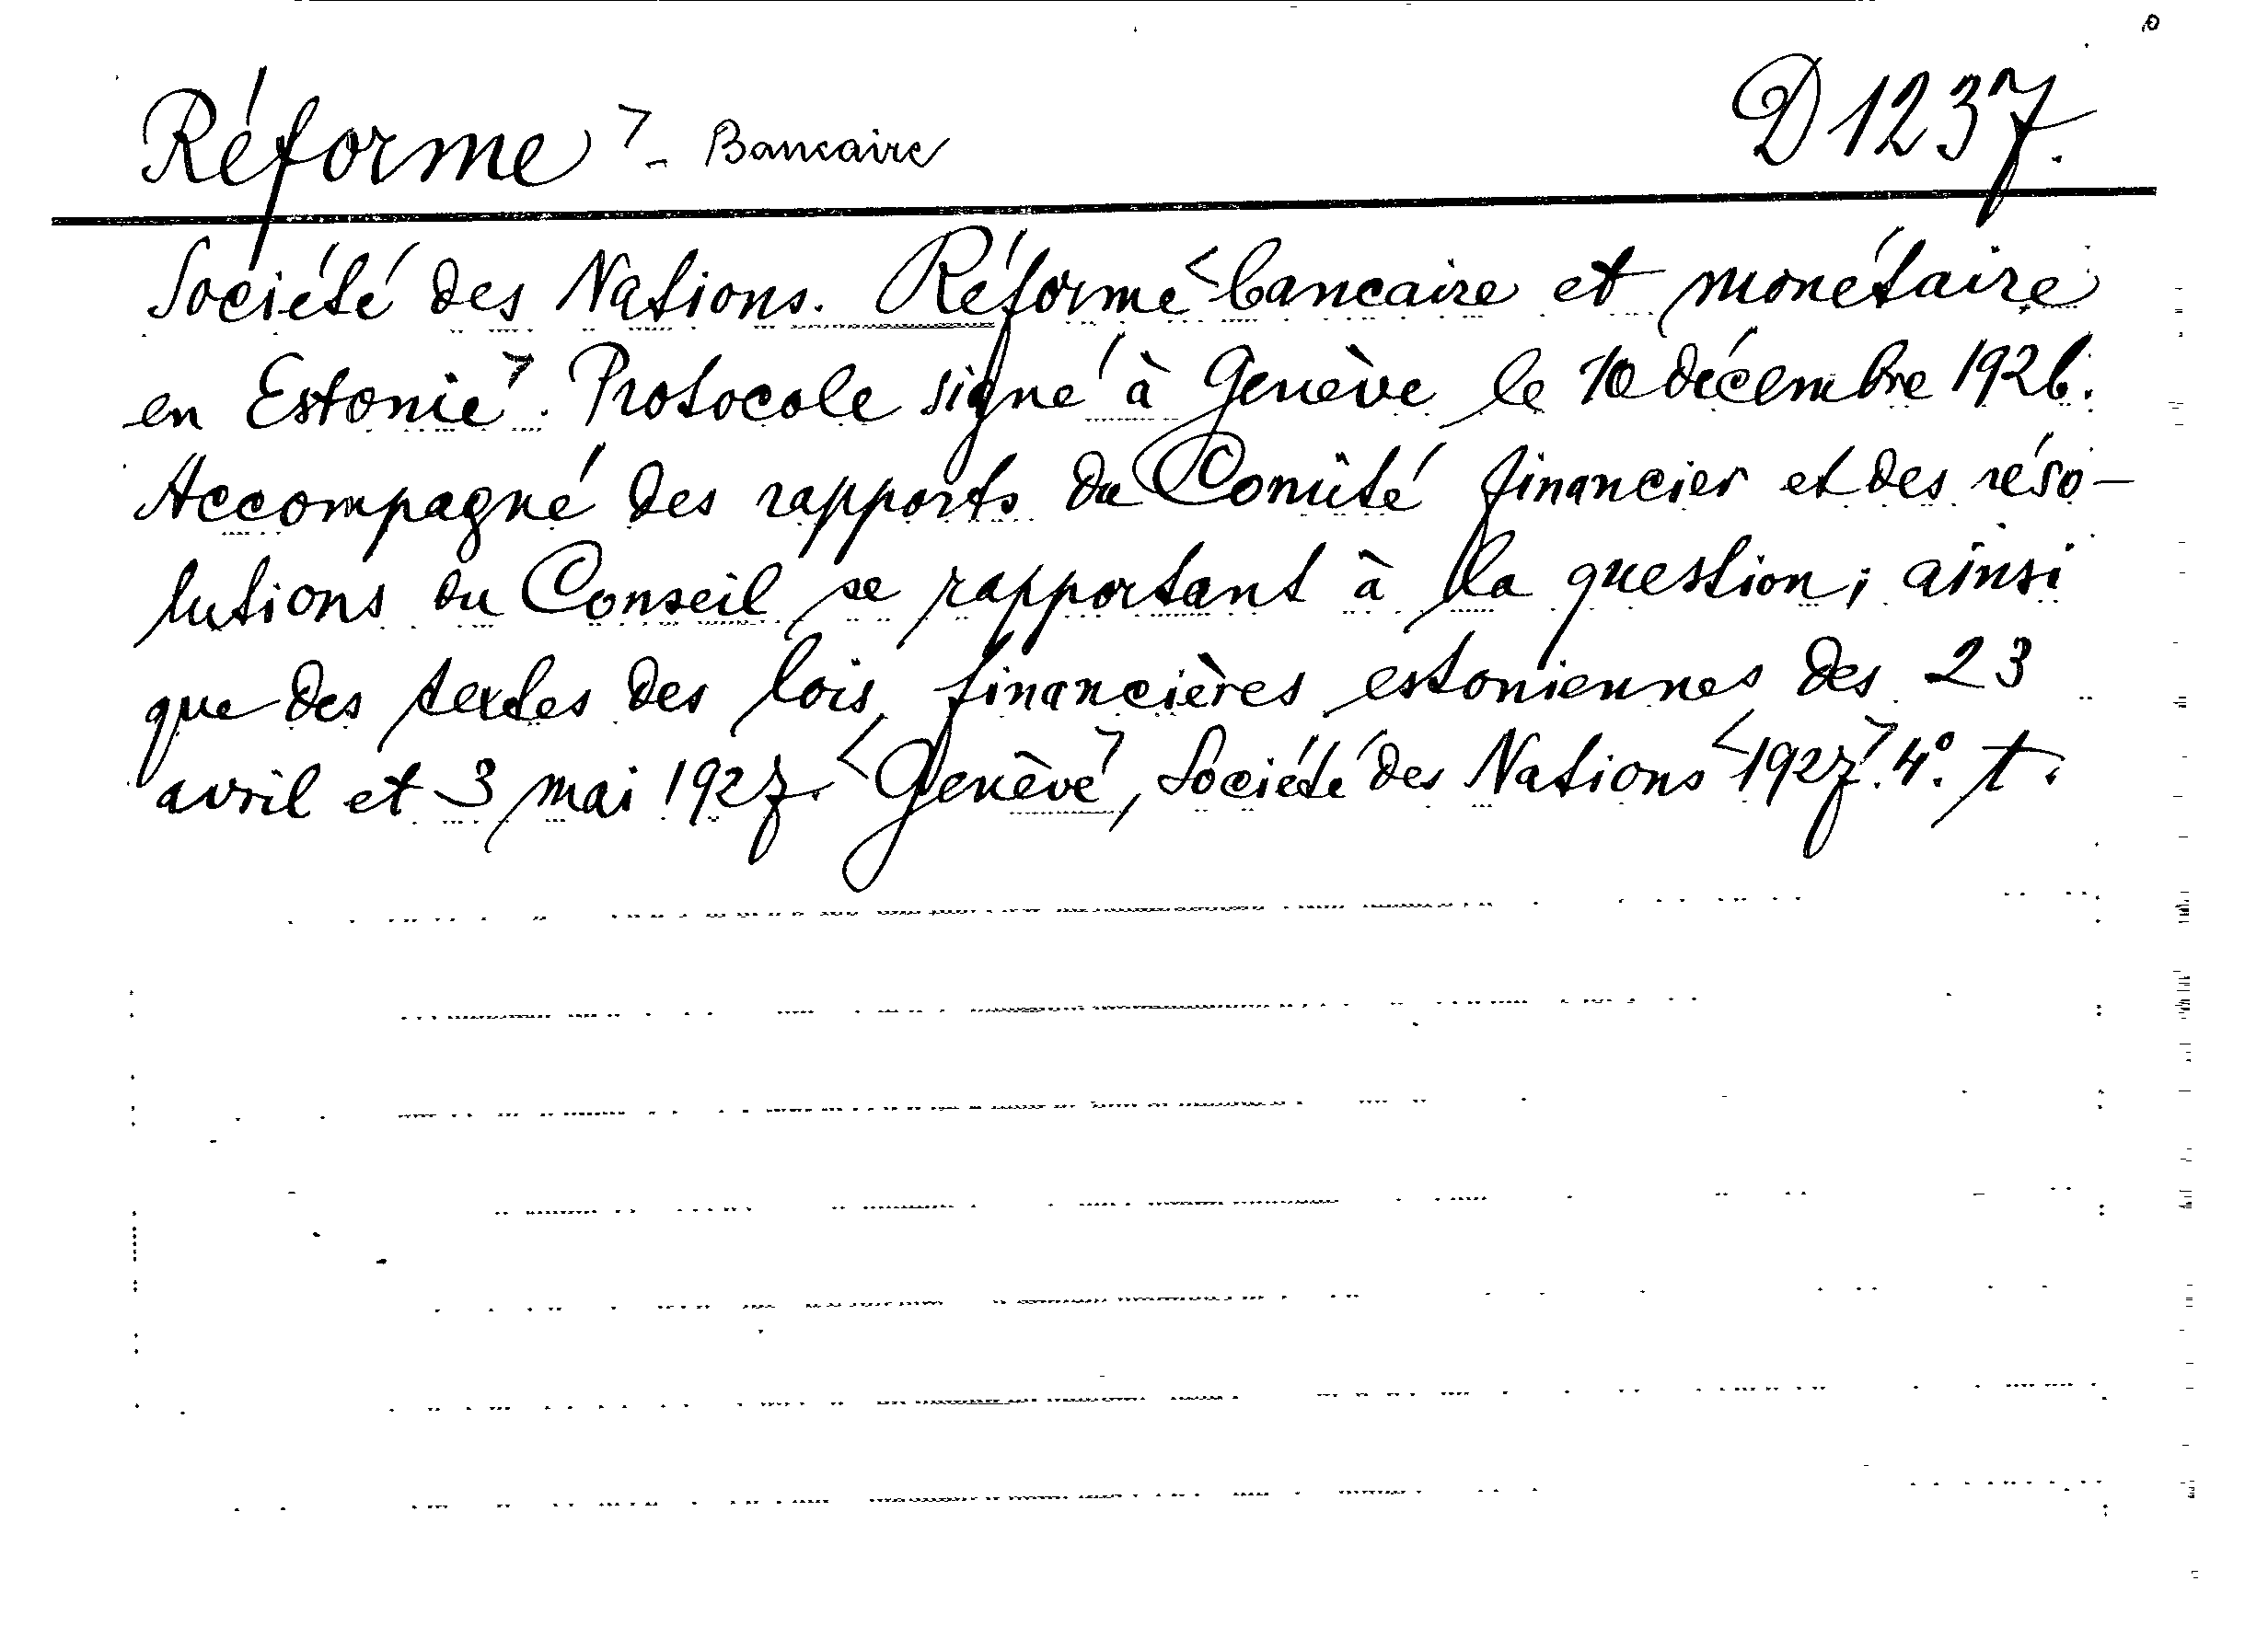 Réforme - Bancaire D 1237.
Société des Nations. Réforme bancaire et monétaire
en Estonie. Protocole signé à Genève le 10 décembre 1926.
Accompagné des rapports du Comité financier et des réso-
lutions du Conseil se rapportant à la question; ainsi
que des textes des lois financières estoniennes des 23
avril et 3 mai 1927. Genève, Société des Nations 1927. 4°. t.